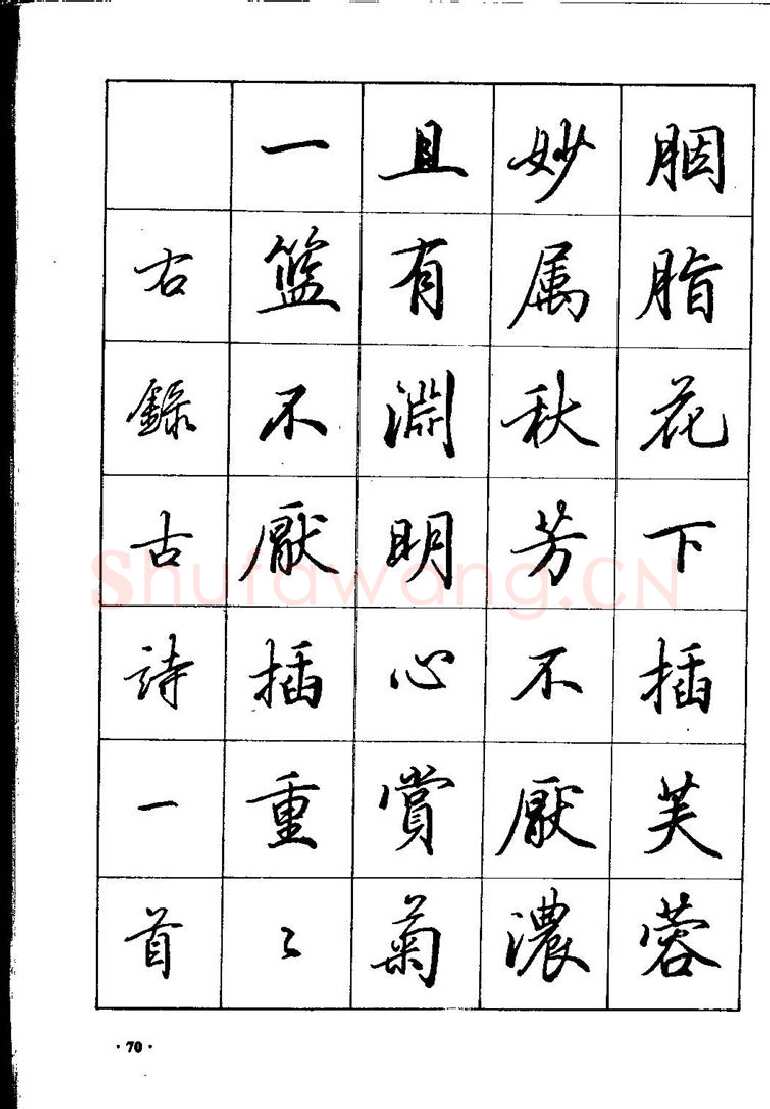 胭脂花下插芙蓉
妙属秋芳不厭濃
且有淵明心賞菊
一籃不厭插重〻
右錄古詩一首
Shufawang.CN
· 70 ·